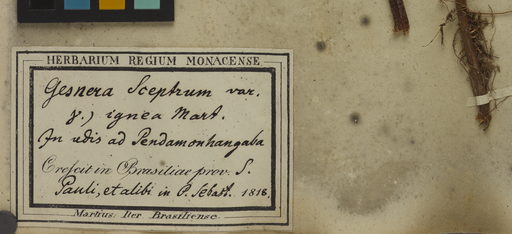 HERBARIUM REGIUM MONACENSE
Gesnera Sceptrum var.
γ.) ignea Mart.
In udis ad Pendamonhangaba
Crescit in Brasiliae prov. S.
Pauli, et alibi in P. Sebast. 1818.
Martius: Iter Brasiliense